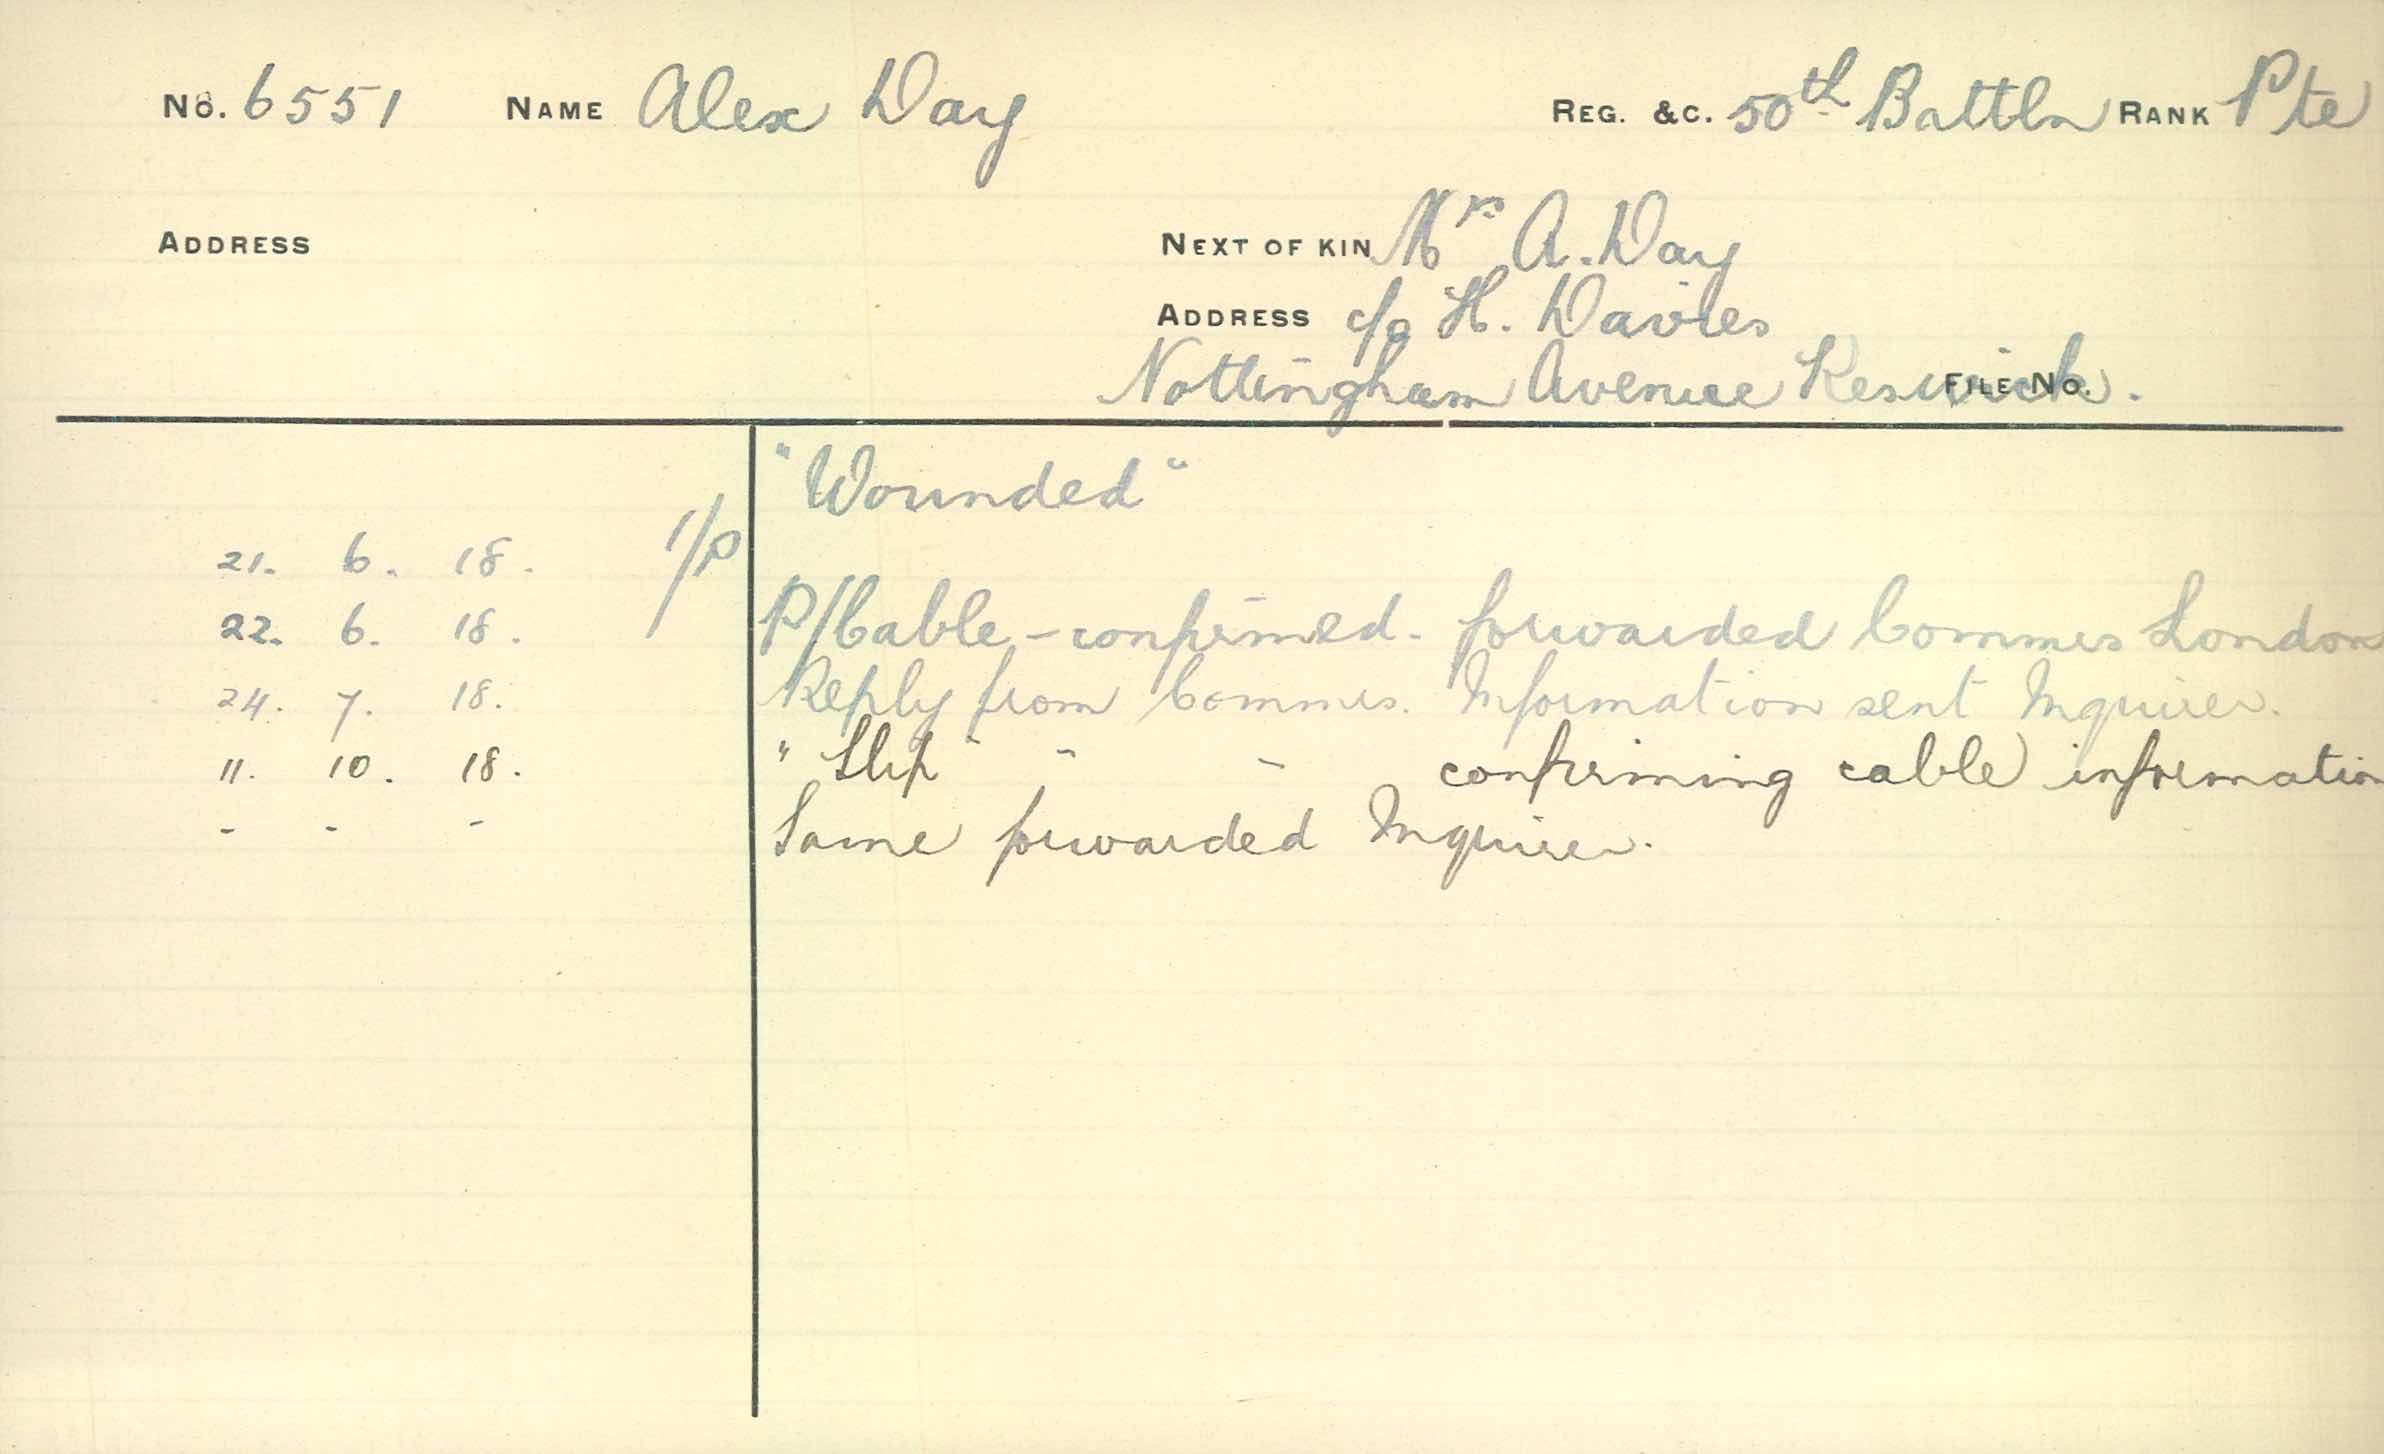 No. 6551 NAME Alex Day REG. &C. 50th Battln RANK Pte
ADDRESS NEXT OF KIN Mrs A. Day
ADDRESS c/o H. Davies
Nottingham Avenue Keswick. FILE No.
"Wounded"
21. 6. 18. 1/P
22. 6. 18. P/Cable - confirmed. forwarded Commrs London
24. 7. 18. Reply from Commrs. Information sent Inquirer.
11. 10. 18. " Slip " " confirming cable information
" " " Same forwarded Inquirer.